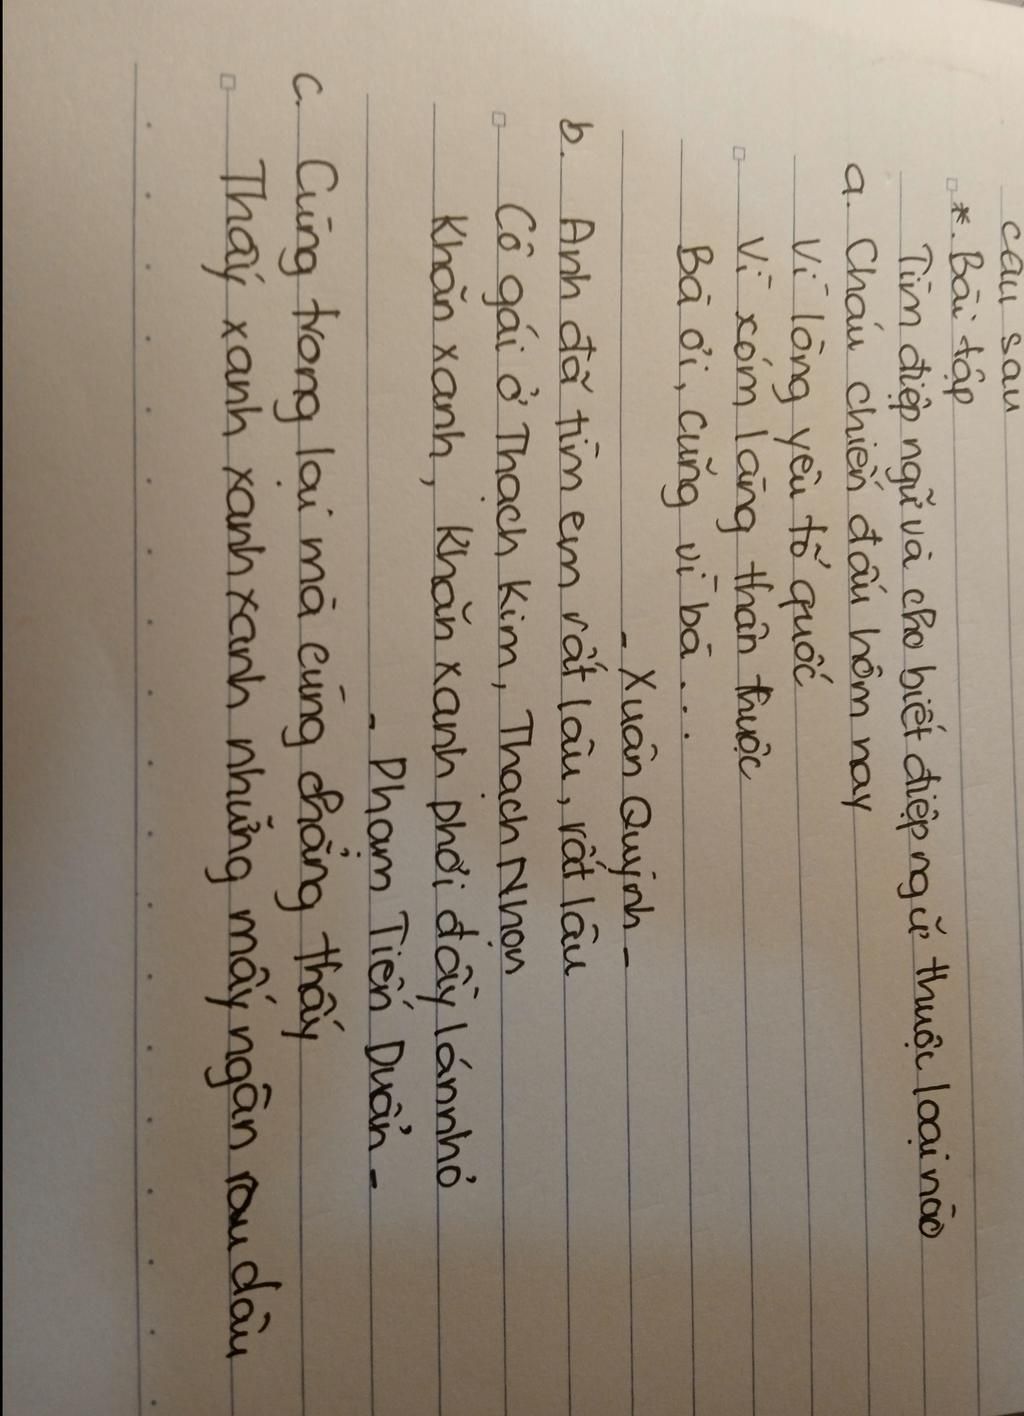 câu sau
*. Bài tập
Tìm điệp ngữ và cho biết điệp ngữ thuộc loại nào
a. Cháu chiến đấu hôm nay
Vì lòng yêu tổ quốc
Vì xóm làng thân thuộc
Bà ơi, cũng vì bà...
- Xuân Quỳnh -
b. Anh đã tìm em rất lâu, rất lâu
Cô gái ở Thạch Kim, Thạch Nhọn
Khăn xanh, khăn xanh phơi đầy lán nhỏ
- Phạm Tiến Duẩn -
c. Cùng trong lại mà cùng chẳng thấy
Thấy xanh xanh xanh những mấy ngân dâu